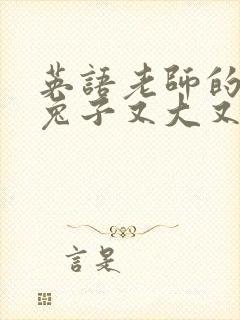 英語老師的
兔子又大又
言是